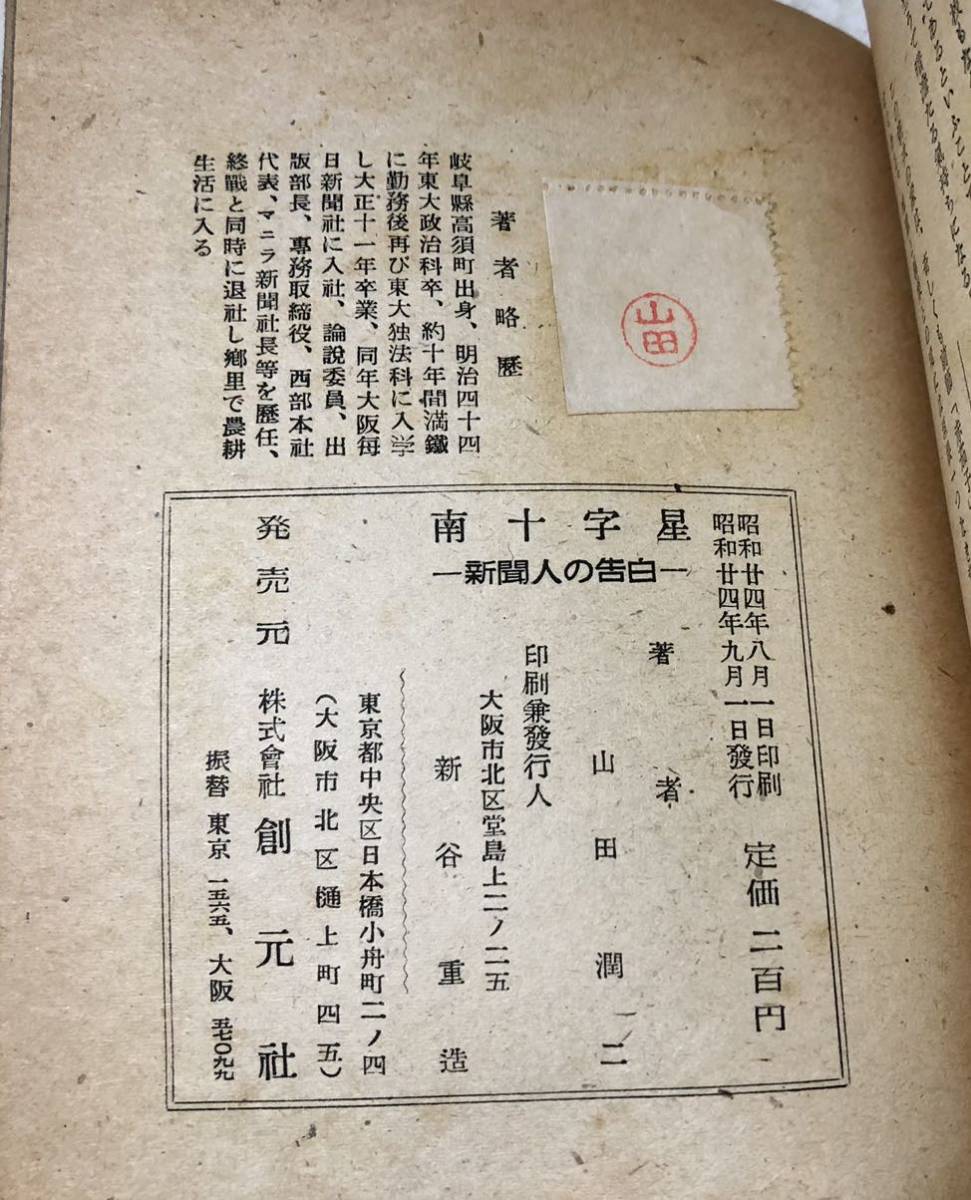 山田
著者略歷
岐阜縣高須町出身、明治四十四
年東大政治科卒、約十年間滿鐵
に勤務後再び東大独法科に入学
し大正十一年卒業、同年大阪每
日新聞社に入社、論說委員、出
版部長、專務取締役、西部本社
代表、マニラ新聞社長等を歷任、
終戰と同時に退社し鄕里で農耕
生活に入る
昭和廿四年八月一日印刷
昭和廿四年九月一日發行
定価二百円
南十字星
―新聞人の告白―
著者
山田潤二
印刷兼發行人
大阪市北区堂島上二ノ二五
新谷重造
東京都中央区日本橋小舟町二ノ四
(大阪市北区樋上町四五)
発売元
株式會社創元社
振替 東京一五六五、大阪五七〇九九